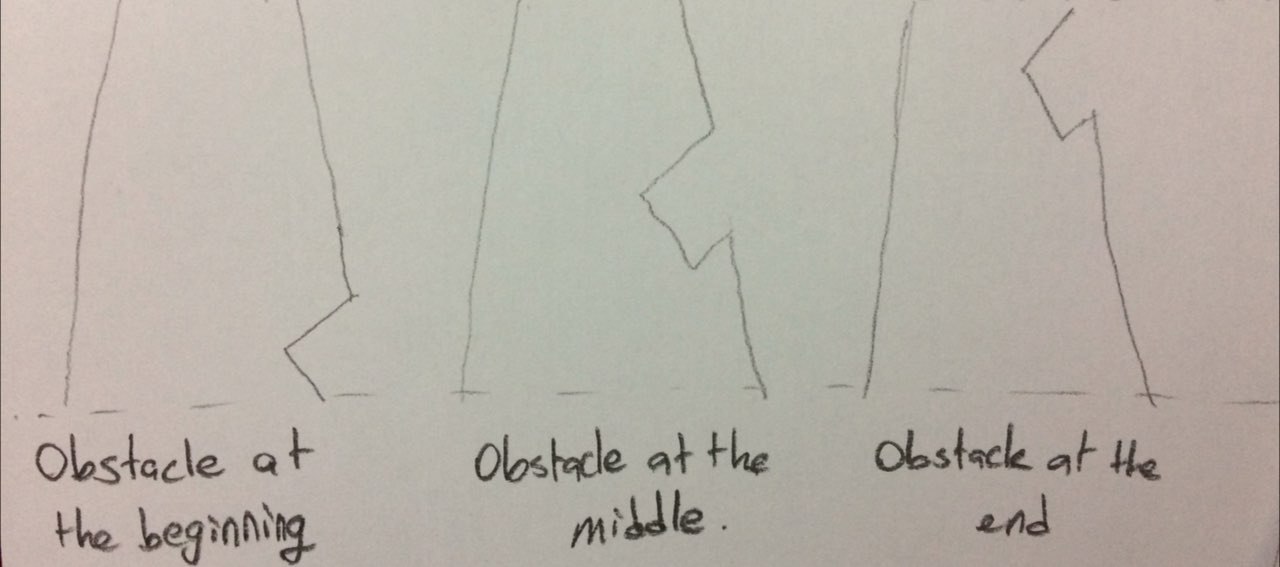 Obstacle at
the beginning
Obstacle at the
middle.
Obstacle at the
end